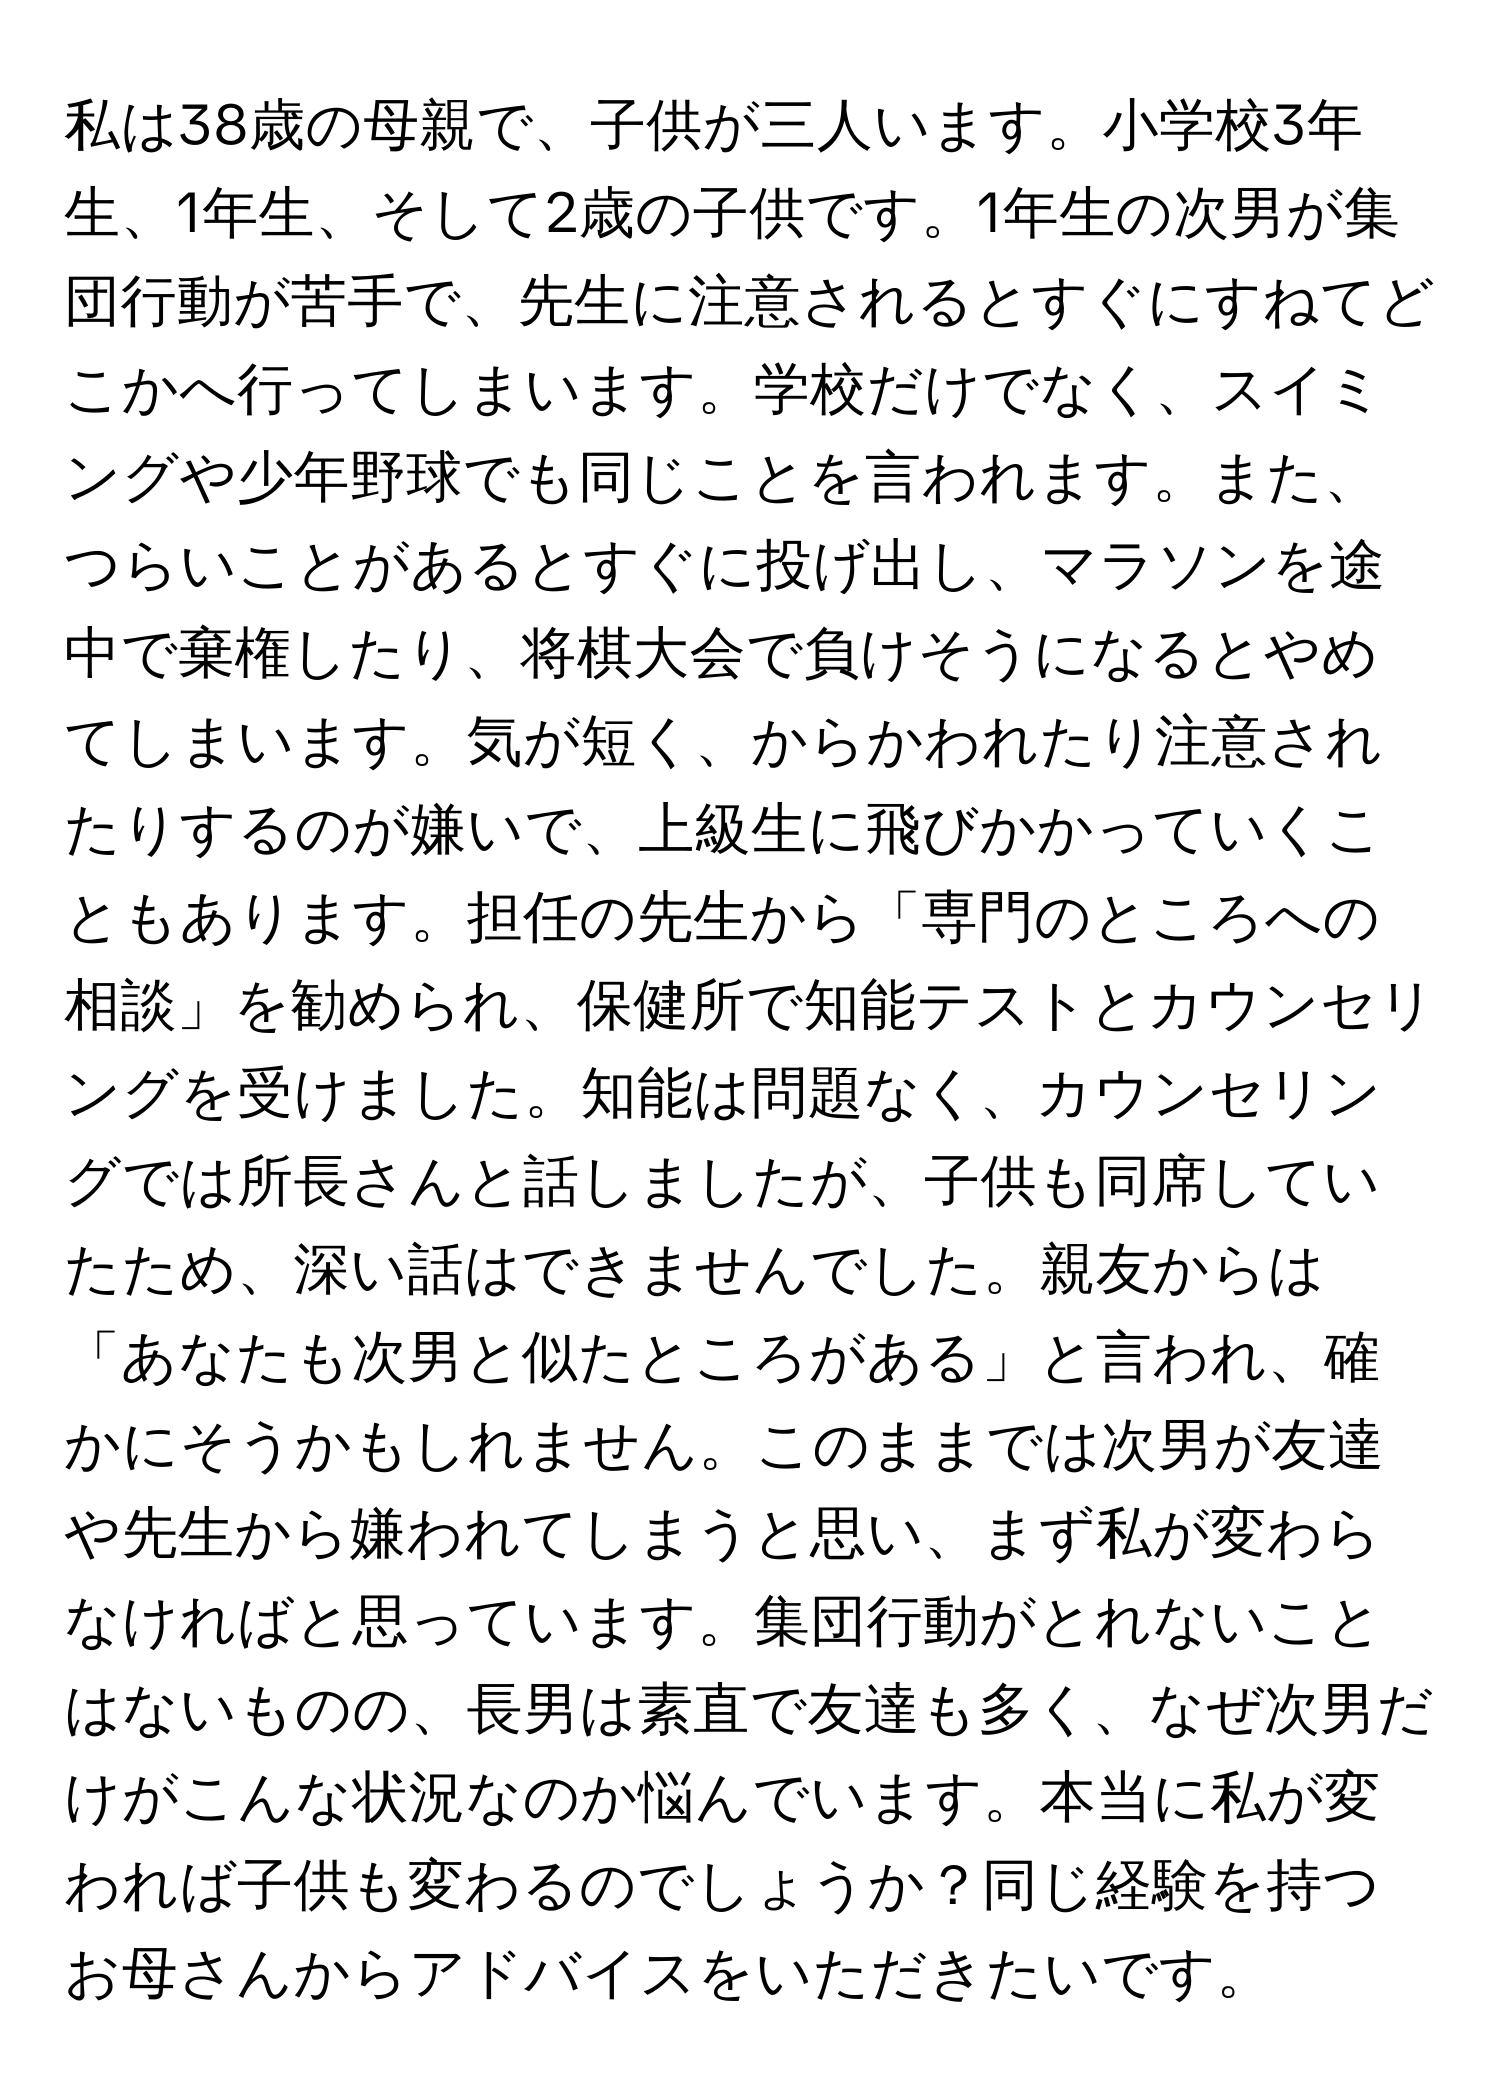 私は38歳の母親で、子供が三人います。小学校3年
生、1年生、そして2歳の子供です。1年生の次男が集
団行動が苦手で、先生に注意されるとすぐにすねてど
こかへ行ってしまいます。学校だけでなく、スイミ
ングや少年野球でも同じことを言われます。また、
つらいことがあるとすぐに投げ出し、マラソンを途
中で棄権したり、将棋大会で負けそうになるとやめ
てしまいます。気が短く、からかわれたり注意され
たりするのが嫌いで、上級生に飛びかかっていくこ
ともあります。担任の先生から「専門のところへの
相談」を勧められ、保健所で知能テストとカウンセリ
ングを受けました。知能は問題なく、カウンセリン
グでは所長さんと話しましたが、子供も同席してい
たため、深い話はできませんでした。親友からは
「あなたも次男と似たところがある」と言われ、確
かにそうかもしれません。このままでは次男が友達
や先生から嫌われてしまうと思い、まず私が変わら
なければと思っています。集団行動がとれないこと
はないものの、長男は素直で友達も多く、なぜ次男だ
けがこんな状況なのか悩んでいます。本当に私が変
われば子供も変わるのでしょうか？同じ経験を持つ
お母さんからアドバイスをいただきたいです。